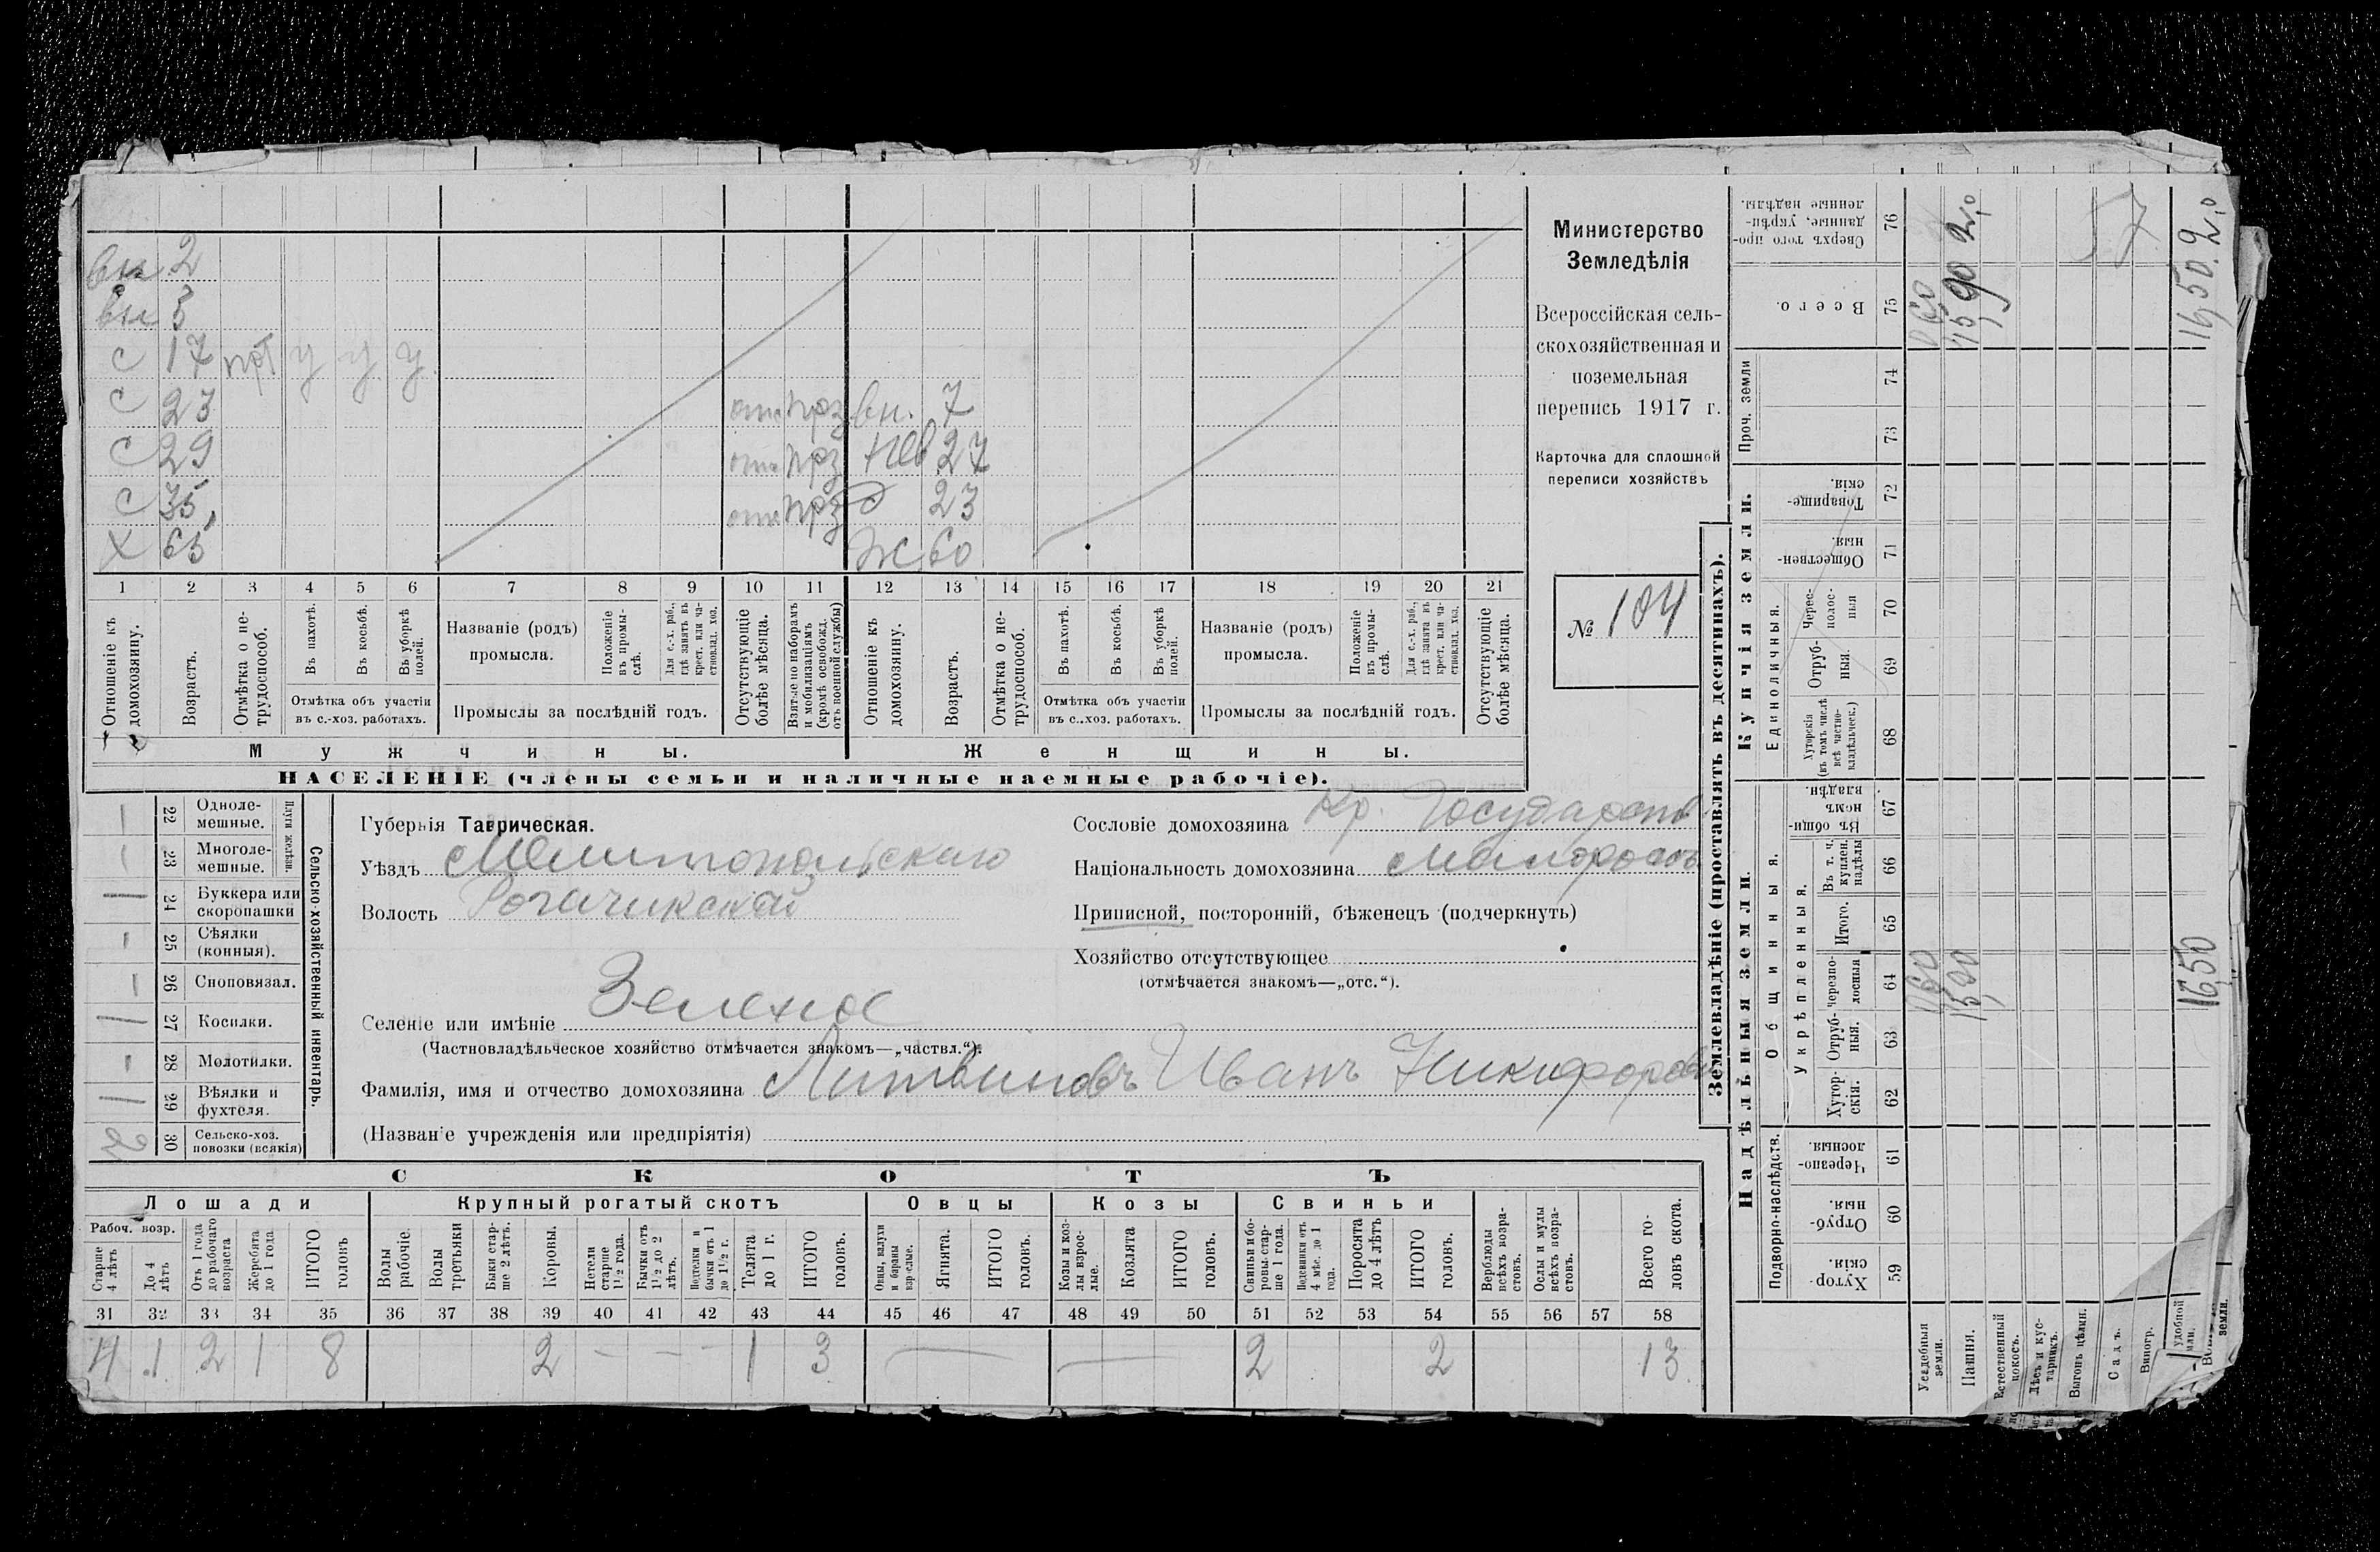 вн 2
вн 3
с 17 прт у у у
с 23 отс прз вн. 7
с 29 отс прз нев 27
с 35 отс прз д 23
х 65 ж 60
1 2 3 4 5 6 7 8 9 10 11 12 13 14 15 16 17 18 19 20 21
Отношеніе къ домохозяину.
Возрастъ.
Отмѣтка о нетрудоспособ.
Въ пахотѣ.
Въ косьбѣ.
Въ уборкѣ полей.
Отмѣтка объ участіи въ с.-хоз. работахъ.
Названіе (родъ) промысла.
Положеніе въ промыслѣ.
Для с.-х. раб., гдѣ занятъ въ крест. или частновлад. хоз.
Промыслы за послѣдній годъ.
Отсутствующіе болѣе мѣсяца.
Взятые по наборамъ и мобилизаціямъ (кромѣ освобожд. отъ военной службы)
Отношеніе къ домохозяину.
Возрастъ.
Отмѣтка о нетрудоспособ.
Въ пахотѣ.
Въ косьбѣ.
Въ уборкѣ полей.
Отмѣтка объ участіи въ с.-хоз. работахъ.
Названіе (родъ) промысла.
Положеніе въ промыслѣ.
Для с.-х. раб., гдѣ занята въ крест. или частновлад. хоз.
Промыслы за послѣдній годъ.
Отсутствующіе болѣе мѣсяца.
Мужчины. Женщины.
НАСЕЛЕНІЕ (члены семьи и наличные наемные рабочіе).
Министерство
Земледѣлія
Всероссійская сель-
скохозяйственная и
поземельная
перепись 1917 г.
Карточка для сплошной
переписи хозяйствъ
№ 104
Сельско-хозяйственный инвентарь.
Плуги желѣзн.
1 22 Одноле-мешные.
1 23 Многоле-мешные.
1 24 Буккера или скоропашки
1 25 Сѣялки (конныя).
1 26 Сноповязал.
1 27 Косилки.
1 28 Молотилки.
1 29 Вѣялки и фухтеля.
2 30 Сельско-хоз. повозки (всякія)
Губернія Таврическая.
Уѣздъ Мелитопольскаго
Волость Рогачикской
Селеніе или имѣніе Зеленое
(Частновладѣльческое хозяйство отмѣчается знакомъ—„частвл.“).
Фамилія, имя и отчество домохозяина Литвиновъ Иванъ Никифоровъ
(Названіе учрежденія или предпріятія)
Сословіе домохозяина Кр. Государств
Національность домохозяина Малороссъ
Приписной, посторонній, бѣженецъ (подчеркнуть)
Хозяйство отсутствующее
(отмѣчается знакомъ—„отс.“).
СКОТЪ
Лошади Крупный рогатый скотъ Овцы Козы Свиньи
Рабоч. возр.
Старше 4 лѣтъ
До 4 лѣтъ
Отъ 1 года до рабочаго возраста
Жеребята до 1 года
ИТОГО головъ
Волы рабочіе.
Волы третьяки
Быки старше 2 лѣтъ.
Коровы.
Нетели старше 1½ года.
Бычки отъ 1½ до 2 лѣтъ.
Подтелки и бычки отъ 1 до 1½ г.
Телята до 1 г.
ИТОГО головъ.
Овцы, валухи и бараны взрослые.
Ягнята.
ИТОГО головъ.
Козы и козлы взрослые.
Козлята
ИТОГО головъ.
Свиньи и боровы старше 1 года.
Подсвинки отъ 4 мѣс. до 1 года.
Поросята до 4 лѣтъ
ИТОГО головъ.
Верблюды всѣхъ возрастовъ.
Ослы и мулы всѣхъ возрастовъ.
Всего головъ скота.
31 32 33 34 35 36 37 38 39 40 41 42 43 44 45 46 47 48 49 50 51 52 53 54 55 56 57 58
4 1 2 1 8 2 - - - 1 3 — — 2 2 13
Землевладѣніе (проставлять въ десятинахъ).
Надѣльныя земли.
Подворно-наслѣдств.
Хуторскія. 59
Отрубныя. 60
Черезполосныя 61
Общинныя.
Укрѣпленныя.
Хуторскія. 62
Отрубныя. 63
Черезполосныя 64
Итого. 65
Въ т. ч. куплен. надѣлы 66
Въ общинномъ владѣн. 67
Купчія земли.
Единоличныя.
Хуторскія (въ томъ числѣ всѣ частновладѣльческ.) 68
Отрубныя. 69
Черезполосныя 70
Общественныя. 71
Товарищескія. 72
Проч. земли 73 74
Всего. 75
Сверхъ того проданные, укрѣпленные надѣлы. 76
Усадебныя земли. 0,60 0,60
Пашня. 15,90 15,90 2,0
Естественный покосъ.
Лѣсъ и кустарникъ.
Выгонъ цѣлин. 57
Садъ.
Виногр.
удобной земли. 16,50 16,50 2,0
земли.